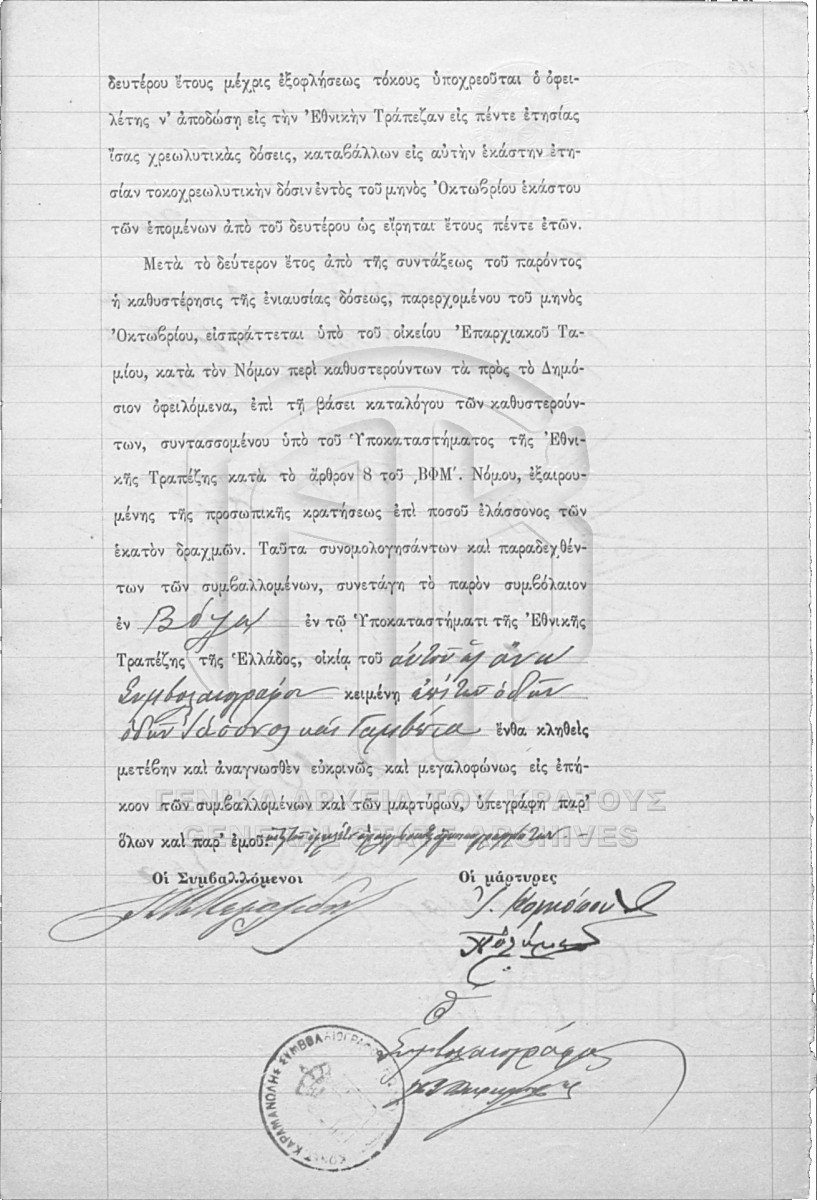 δευτέρου ἔτους μέχρις ἐξοφλήσεως τόκους ὑποχρεοῦται ὁ ὀφει-
λέτης ν' ἀποδώσῃ εἰς τὴν Ἐθνικὴν Τράπεζαν εἰς πέντε ἐτησίας
ἴσας χρεωλυτικὰς δόσεις, καταβάλλων εἰς αὐτὴν ἑκάστην ἐτη-
σίαν τοκοχρεωλυτικὴν δόσιν ἐντὸς τοῦ μηνὸς Ὀκτωβρίου ἑκάστου
τῶν ἑπομένων ἀπὸ τοῦ δευτέρου ὡς εἴρηται ἔτους πέντε ἐτῶν.
Μετὰ τὸ δεύτερον ἔτος ἀπὸ τῆς συντάξεως τοῦ παρόντος
ἡ καθυστέρησις τῆς ἐνιαυσίας δόσεως, παρερχομένου τοῦ μηνὸς
Ὀκτωβρίου, εἰσπράττεται ὑπὸ τοῦ οἰκείου Ἐπαρχιακοῦ Τα-
μίου, κατὰ τὸν Νόμον περὶ καθυστερούντων τὰ πρὸς τὸ Δημό-
σιον ὀφειλόμενα, ἐπὶ τῇ βάσει καταλόγου τῶν καθυστερούν-
των, συντασσομένου ὑπὸ τοῦ Ὑποκαταστήματος τῆς Ἐθνι-
κῆς Τραπέζης κατὰ τὸ ἄρθρον 8 τοῦ ͵ΒΦΜ΄. Νόμου, ἐξαιρου-
μένης τῆς προσωπικῆς κρατήσεως ἐπὶ ποσοῦ ἐλάσσονος τῶν
ἑκατὸν δραχμῶν. Ταῦτα συνομολογησάντων καὶ παραδεχθέν-
των τῶν συμβαλλομένων, συνετάγη τὸ παρὸν συμβόλαιον
ἐν Βόλῳ ἐν τῷ Ὑποκαταστήματι τῆς Ἐθνικῆς
Τραπέζης τῆς Ἑλλάδος, οἰκίᾳ τοῦ
Συμβολαιογράφου κειμένῃ ἐπὶ τῶν ὁδῶν
ὁδῶν Ἰάσονος καὶ Γαμβέτα ἔνθα κληθεὶς
μετέβην καὶ ἀναγνωσθὲν εὐκρινῶς καὶ μεγαλοφώνως εἰς ἐπή-
κοον τῶν συμβαλλομένων καὶ τῶν μαρτύρων, ὑπεγράφη παρ'
ὅλων καὶ παρ' ἐμοῦ.
ΓΕΝΙΚΑ ΑΡΧΕΙΑ ΤΟΥ ΚΡΑΤΟΥΣ
GENERAL STATE ARCHIVES
Οἱ Συμβαλλόμενοι
Οἱ μάρτυρες
Ὁ
Συμβολαιογράφος
ΚΩΝΣΤ ΚΑΡΑΜΑΝΩΛΗΣ ΣΥΜΒΟΛΑΙΟΓΡΑΦΟΣ